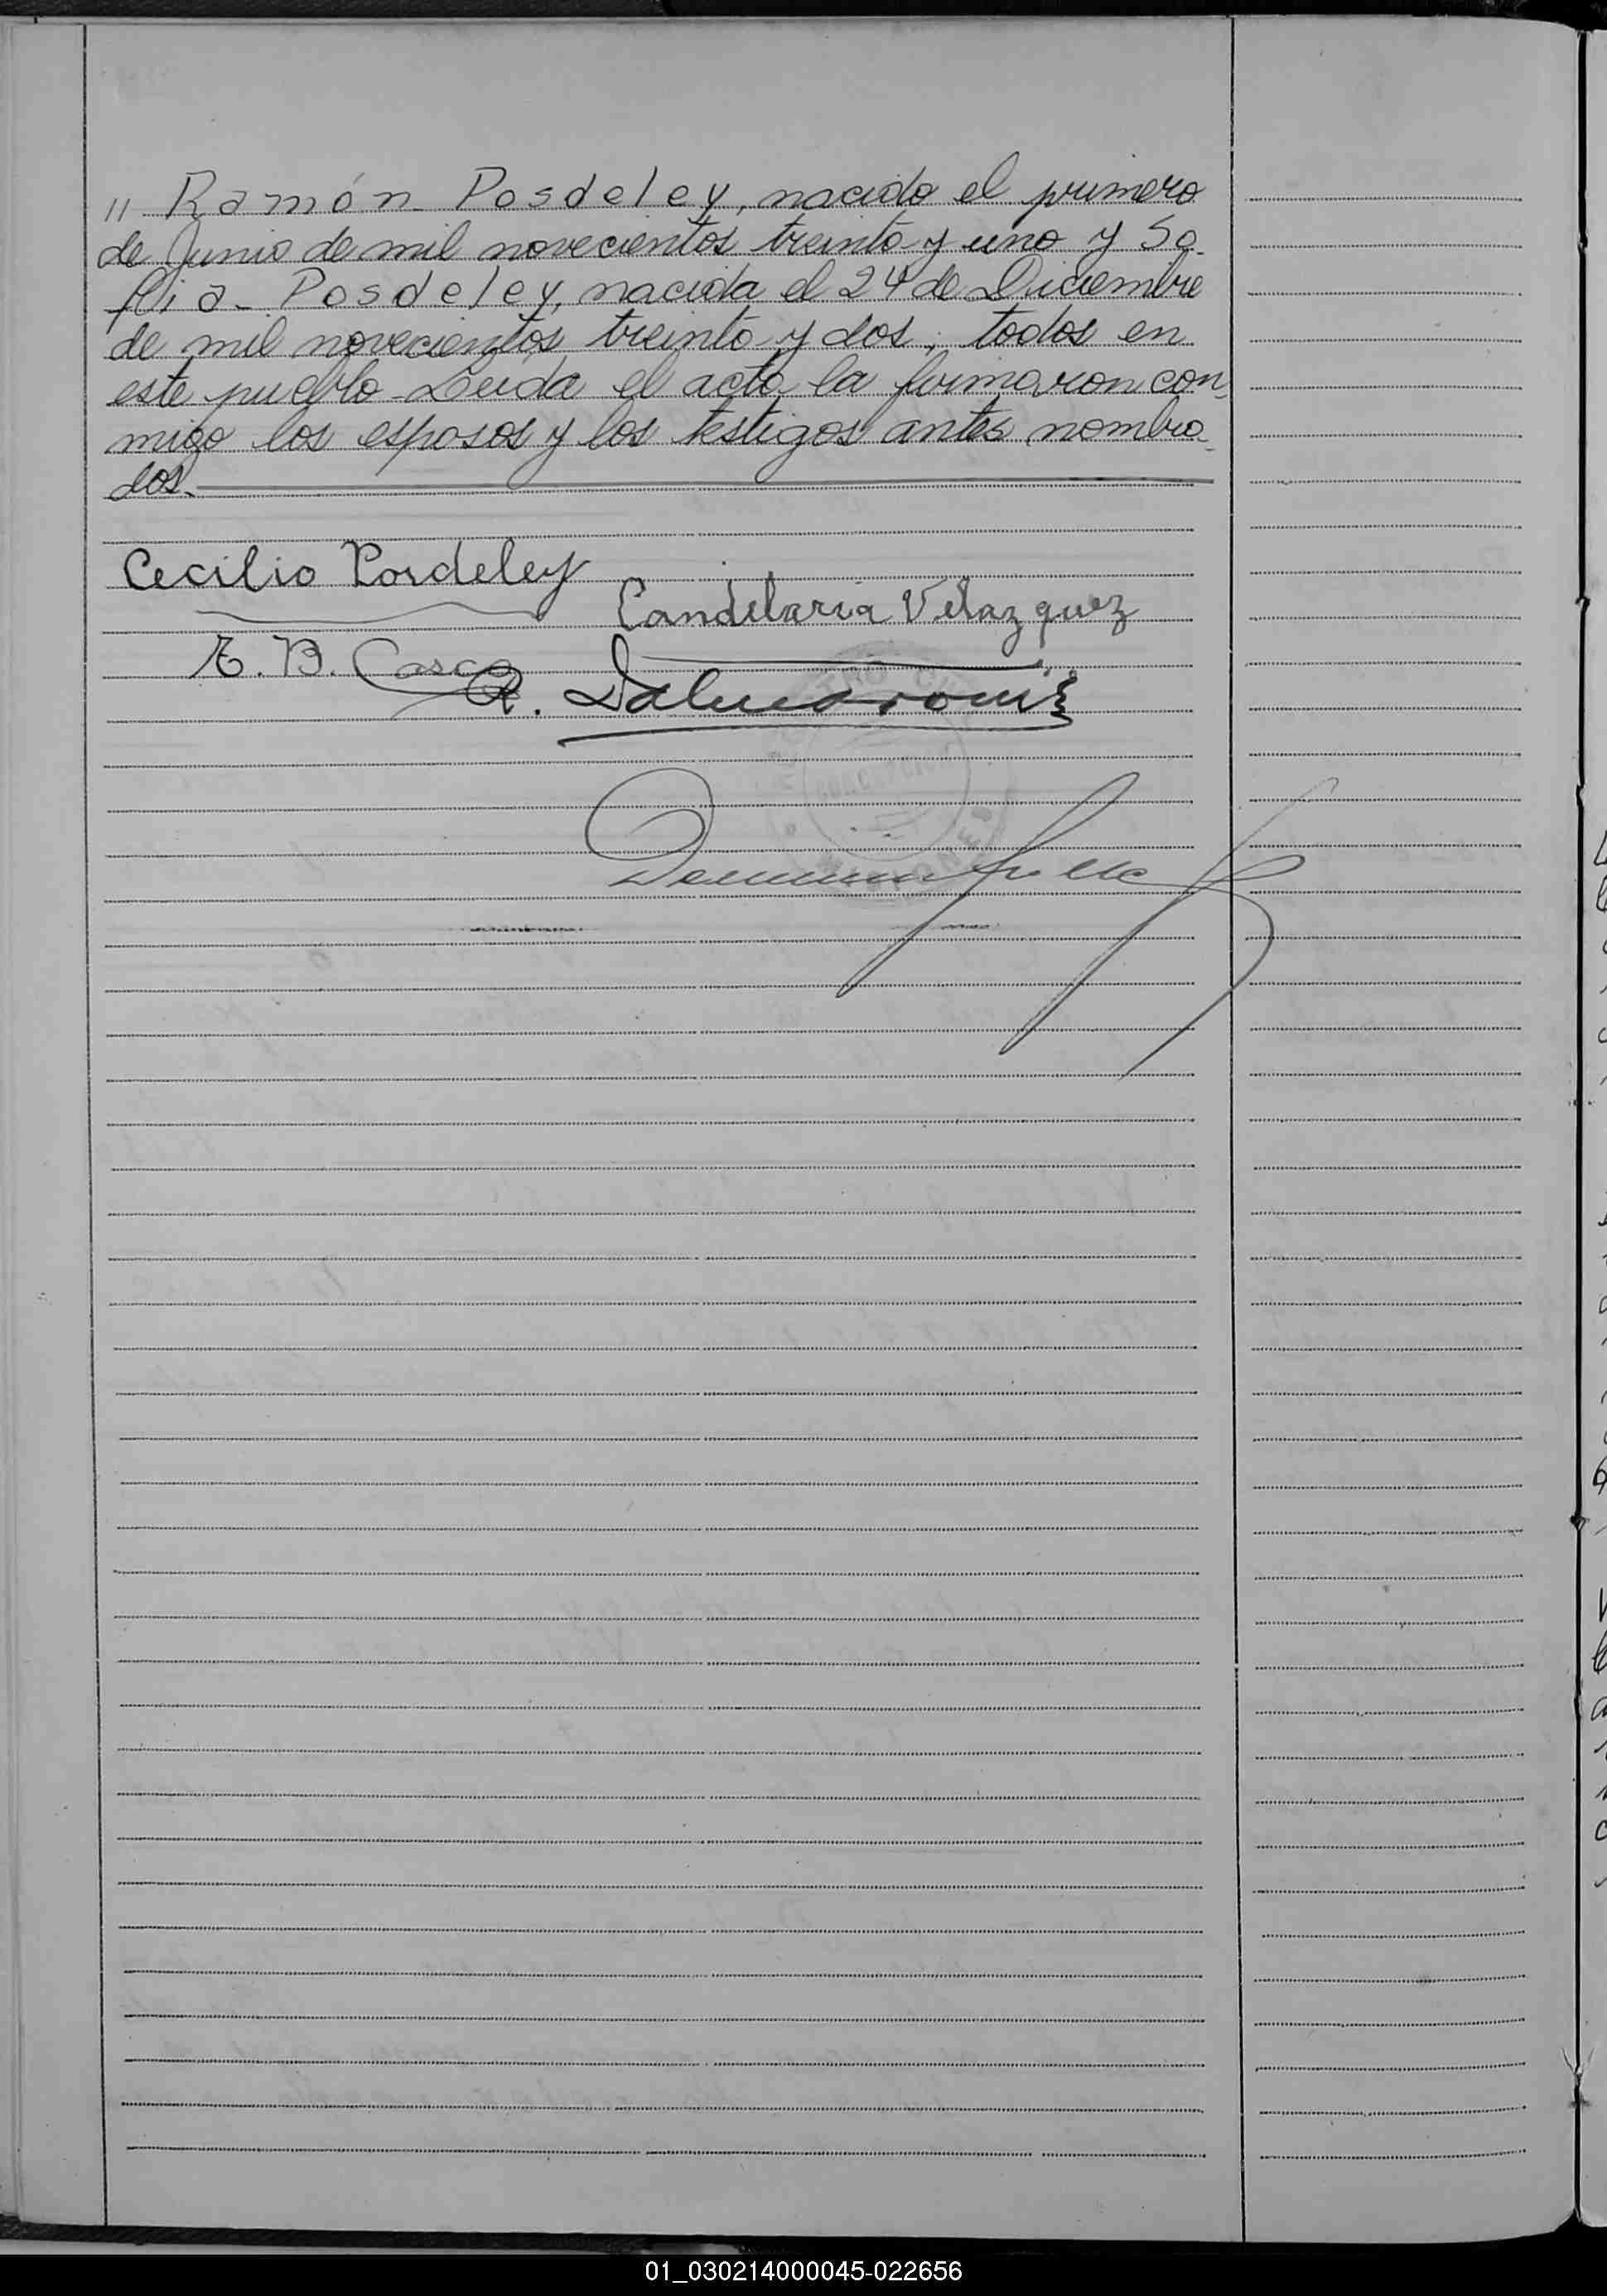 " Ramón Posdeley, nacido el primero
de Junio de mil novecientos treinta y uno y So-
fia Posdeley, nacida el 24 de Diciembre
de mil novecientos treinta y dos, todos en
este pueblo. Leida el acta la firmaron con-
migo los esposos y los testigos antes nombra-
dos.
Cecilio Posdeley
Candelaria Velazquez
E. B. Casco
R. Dalmaroni
01_030214000045-022656